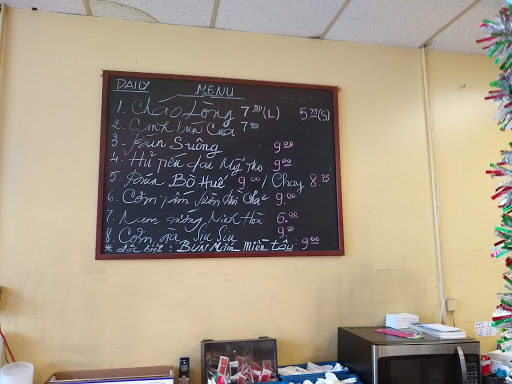 DAILY MENU
1. Cháo Lòng 7.00 (L) 5.75 (S)
2. Canh Bún Cua 7.00
3. Bún Suông 9.00
4. Hủ Tiếu Mỹ Tho 9.00
5. Bún Bò Huế 9.00 / Chay 8.75
6. Cơm 9.00
7. Nem nướng Ninh Hòa 6.00
8. Cơm gà Siu Siu 9.00
* đặc biệt : BÚN Mắm Miền tây 9.00